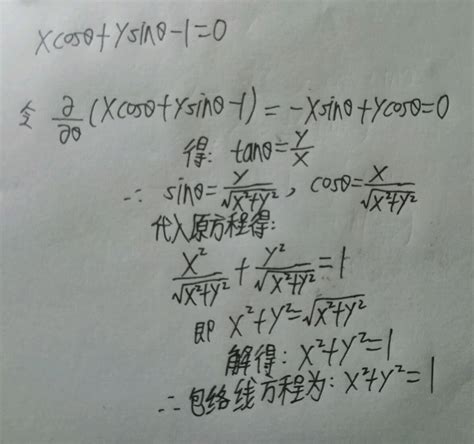 xcosθ+ysinθ-1=0
令 ∂/∂θ (xcosθ+ysinθ-1) = -xsinθ+ycosθ=0
得: tanθ=y/x
∴ sinθ=y/√(x²+y²), cosθ=x/√(x²+y²)
代入原方程得:
x²/√(x²+y²) + y²/√(x²+y²) = 1
即 x²+y²=√(x²+y²)
解得: x²+y²=1
∴包络线方程为: x²+y²=1